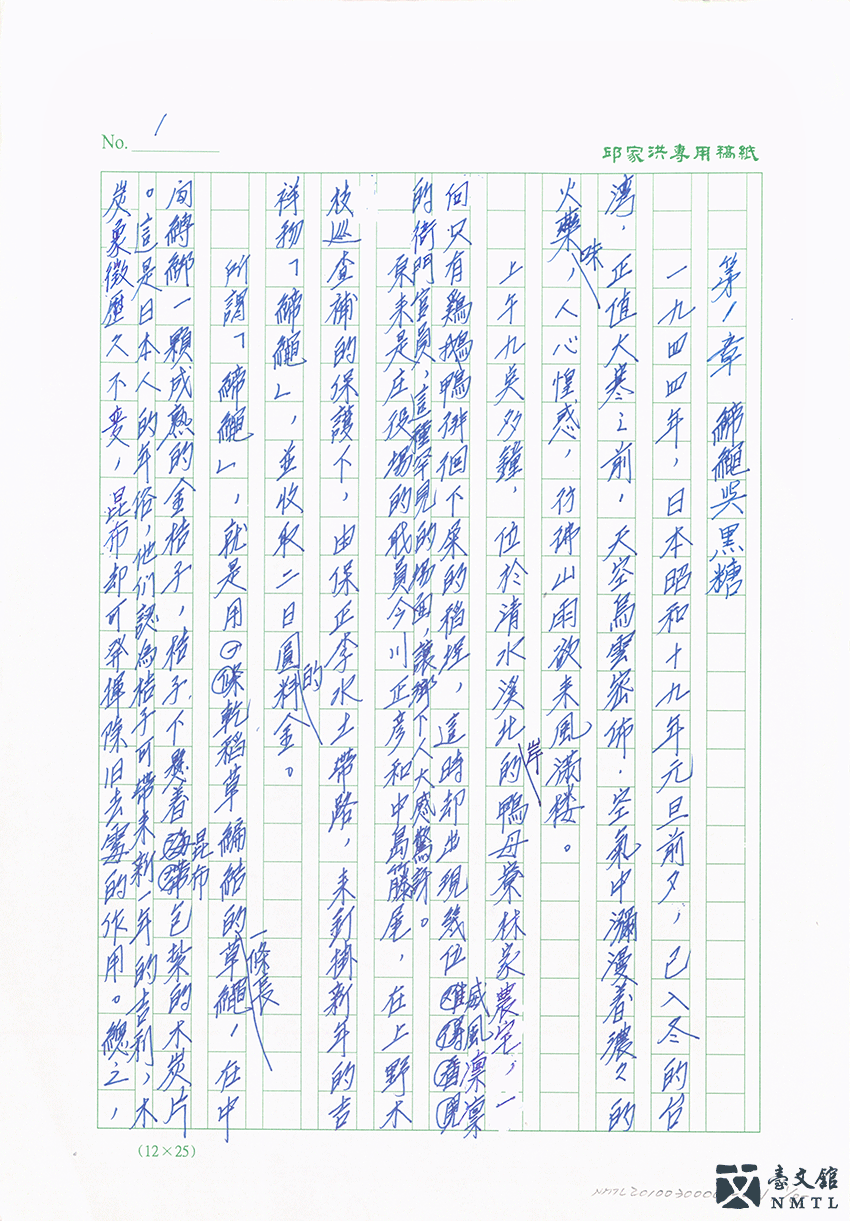 No. 1
邱家洪專用稿紙
第一章 締繩與黑糖
一九四四年，日本昭和十九年元旦前夕，已入冬的台
湾，正值大寒之前，天空烏雲密佈，空氣中瀰漫着濃々的
火藥味，人心惶惑，彷彿山雨欲來風滿楼。
上午九奌多鐘，位於清水溪北岸的鴨母寮林家農宅，一
向只有鷄鵝鴨徘徊下屎的稻埕，這時却出現幾位威風凛凛
的衙門官員，這種罕見的場面，讓鄉下人大感驚訝。
原来是庄役場的职員今川正彥和中島籐尾，在上野木
枝巡查補的保護下，由保正李水土帶路，来釘掛新年的吉
祥物「締繩」，並收取二日圓的料金。
所謂「締繩」，就是用一條長乾稻草編結的草繩，在中
间縛綁一顆成熟的金桔子，桔子下懸着昆布包紮的木炭片
。這是日本人的年俗，他们認為桔子可帶来新一年的吉利，木
炭象徵歷久不变，昆布却可発揮除旧去霉的作用。總之，
(12×25)
臺文館
NMTL